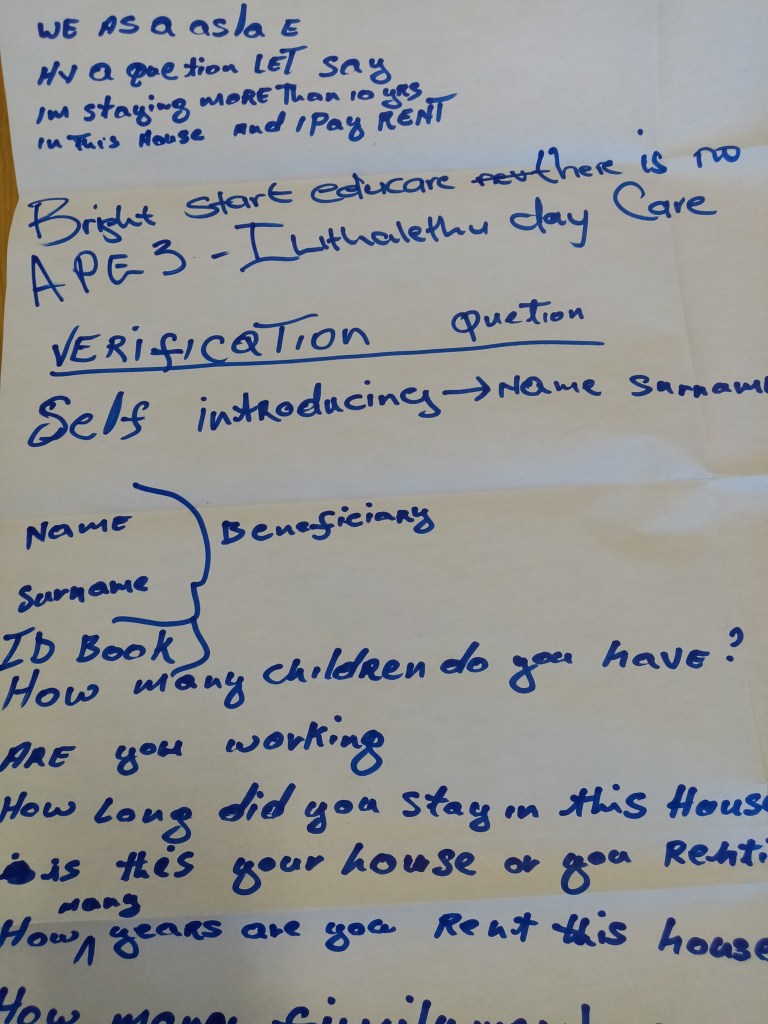 WE AS a asla E
HV a quetion LET say
Im staying MORE Than 10 yrs
in This House and I Pay RENT
Bright start educare there is no
APE3 - Iluthalethu day Care
VERifICATION Quetion
Self introducing → Name Surname
Name
Beneficiary
Surname
ID Book
How many children do you have?
ARE you working
How Long did you stay in this House
is this your house or you Renti
How many years are you Rent this house
How many